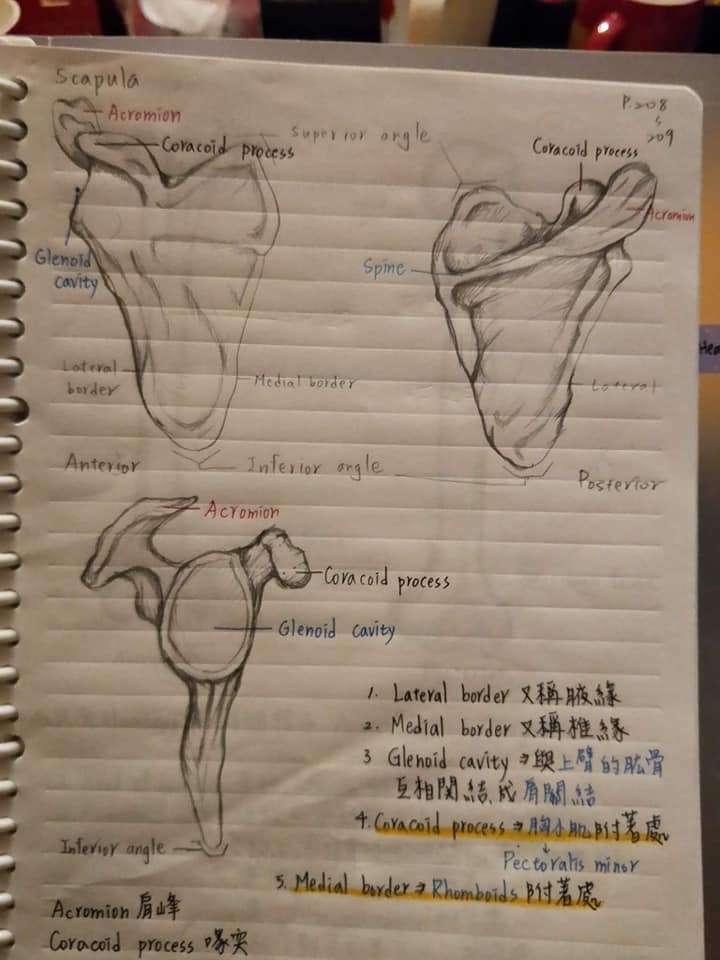 Scapula
P.208
209
Acromion
Superior angle
Coracoid process
Coracoid process
Acromion
Glenoid
cavity
Spine
Lateral
border
Medial border
Lateral
Anterior
Inferior angle
Posterior
Acromion
Coracoid process
Glenoid cavity
1. Lateral border 又稱腋緣
2. Medial border 又稱椎緣
3 Glenoid cavity → 與上臂的肱骨
互相関結成肩關結
4. Coracoid process → 胸小肌附著處
Pectoralis minor
Inferior angle
5. Medial border → Rhomboids 附著處
Acromion 肩峰
Coracoid process 喙突